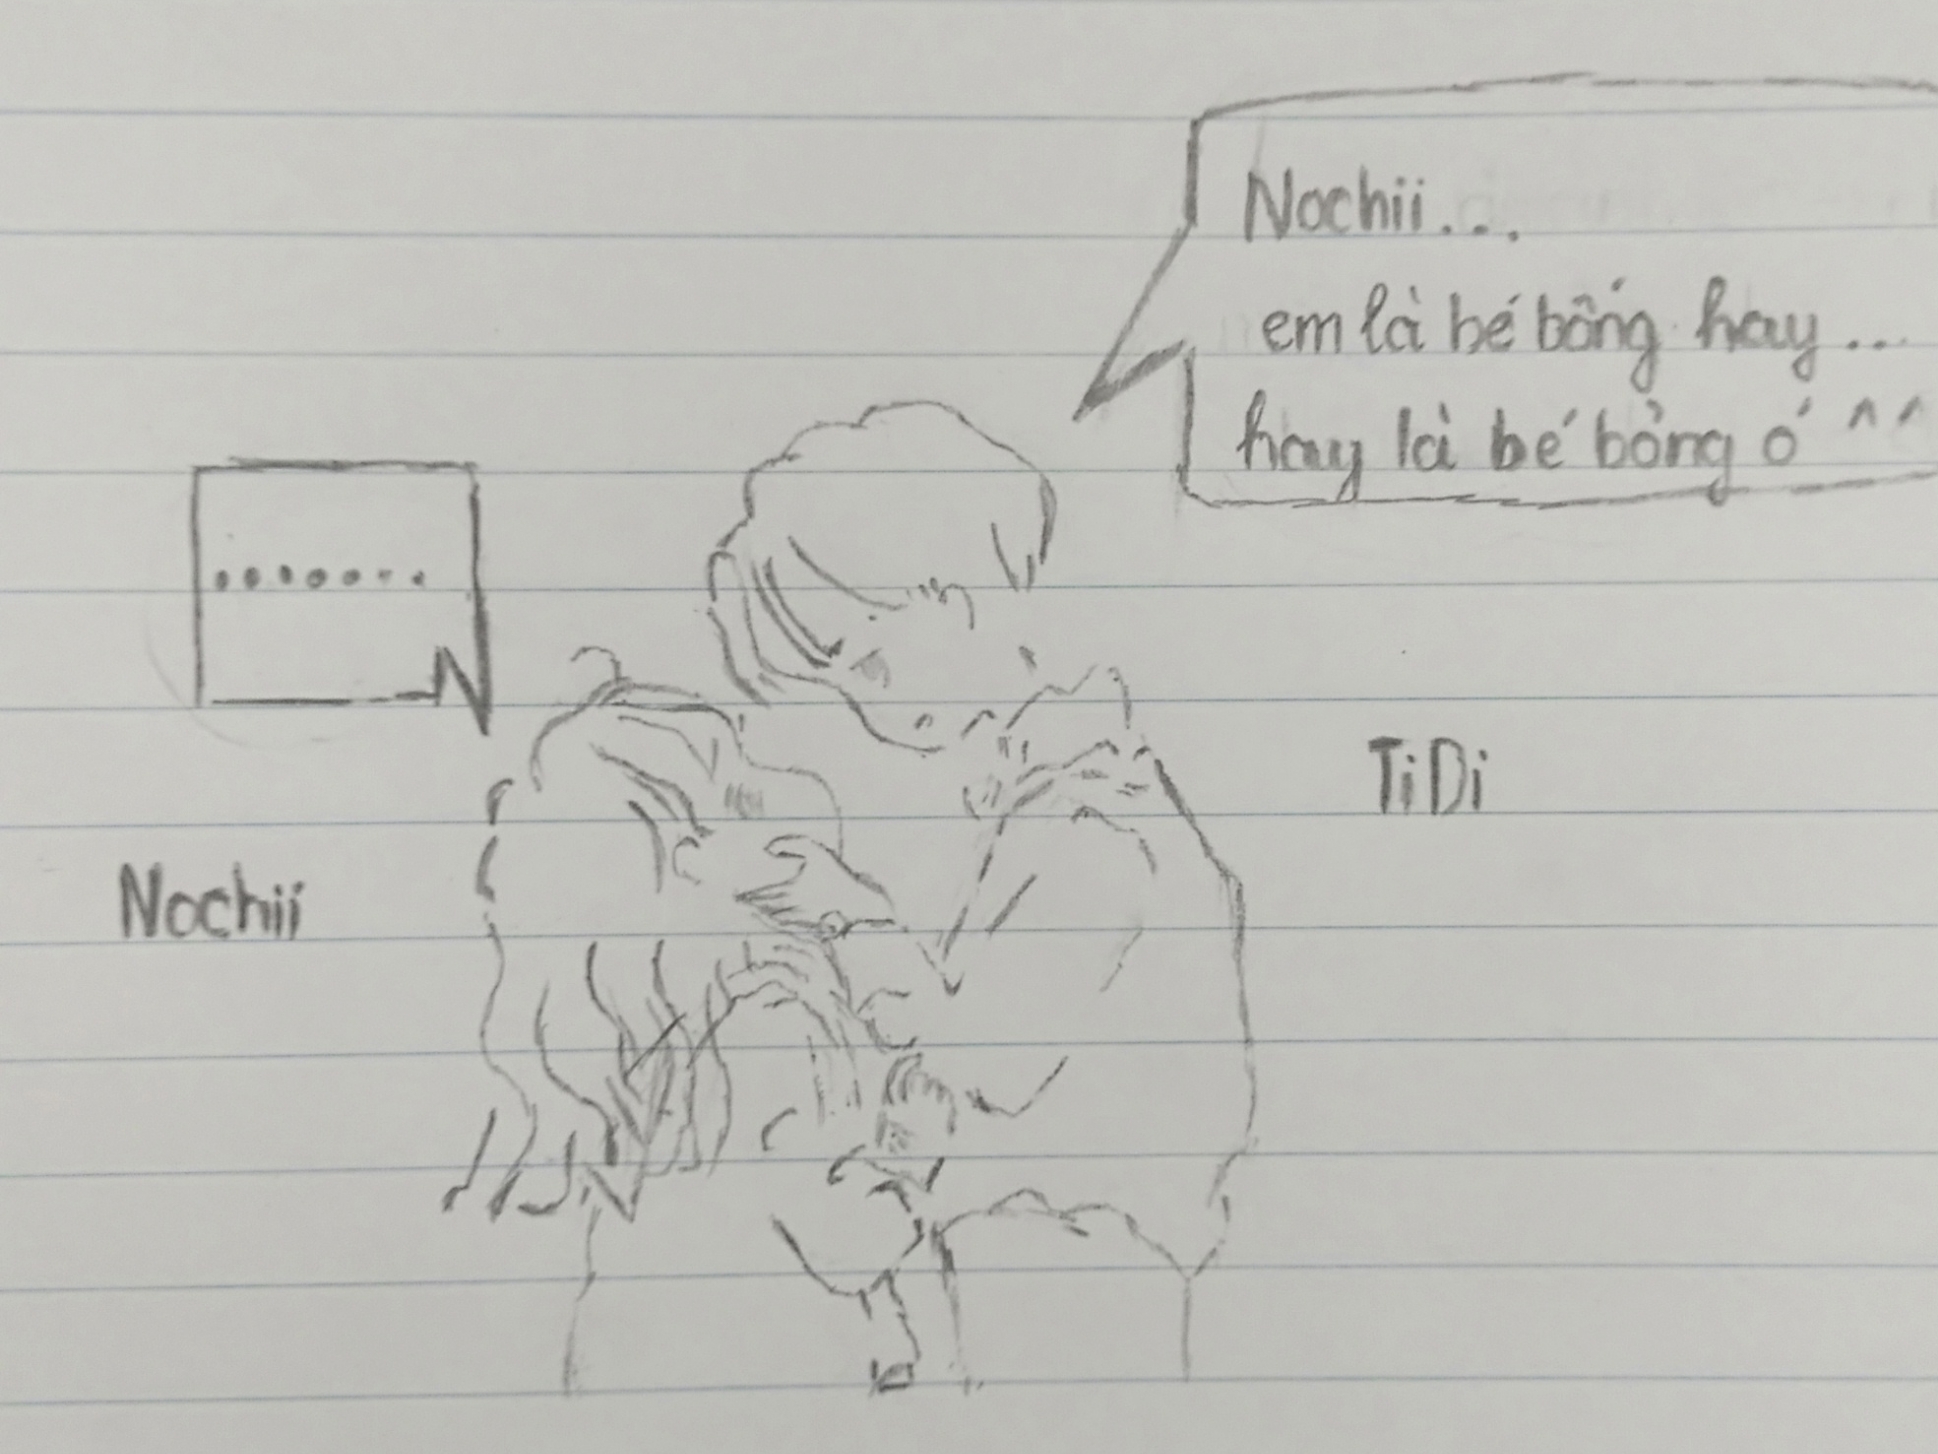 Nochii...
em là bé bống hay...
hay là bé bỏng ó ^^
.......
TiDi
Nochii